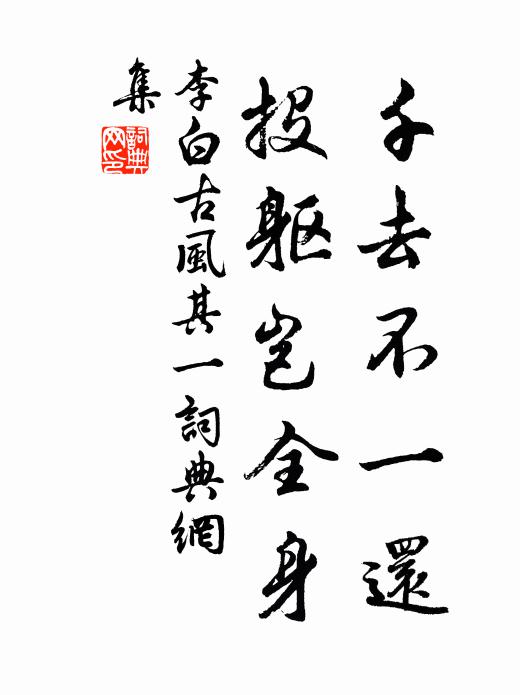 千去不一還
投軀岂全身
李白古風其一詞典網
集
詞典
网印